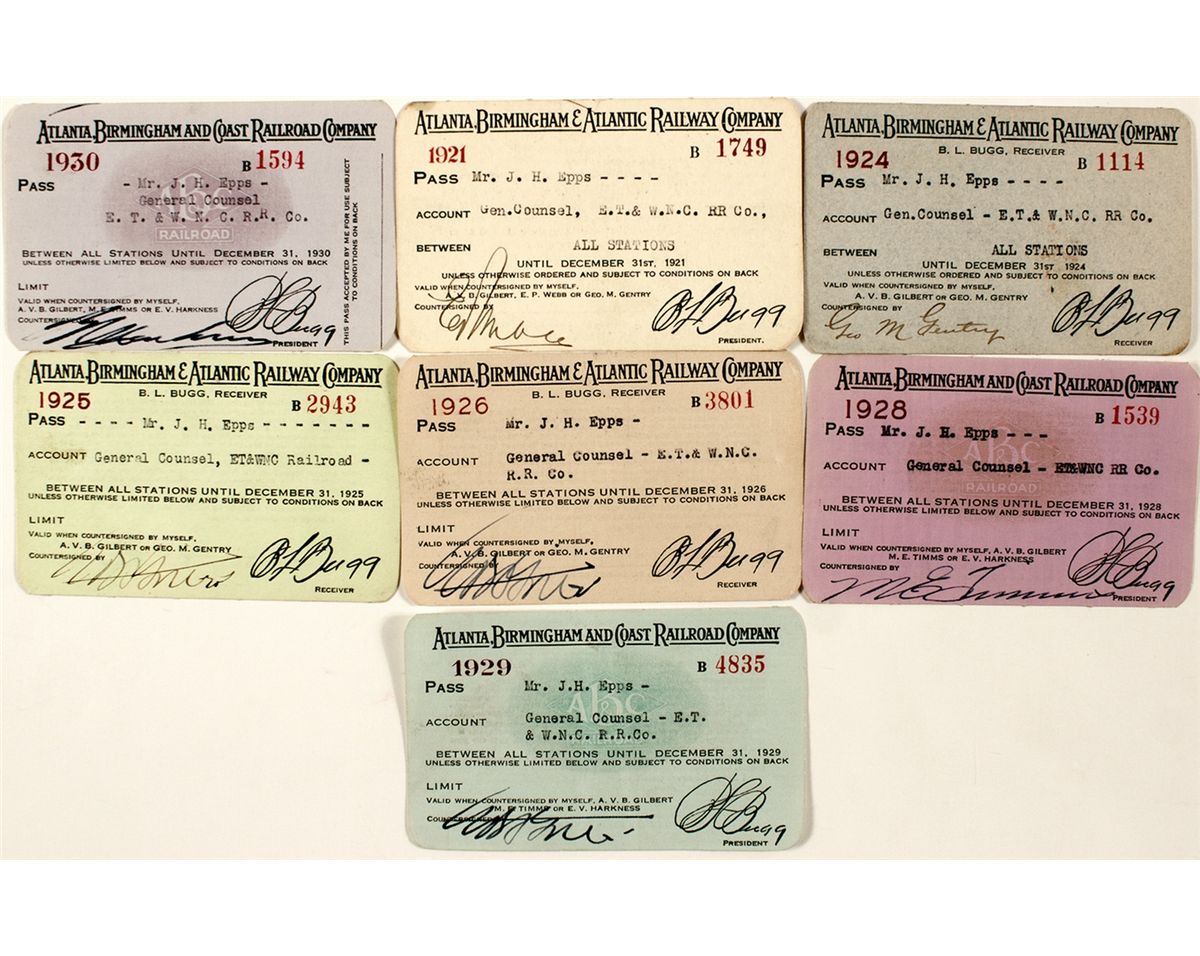 ATLANTA, BIRMINGHAM AND COAST RAILROAD COMPANY
1930 B 1594
PASS - Mr. J. H. Epps -
General Counsel
E. T. & W. N. C. R.R. Co.
abc
RAILROAD
BETWEEN ALL STATIONS UNTIL DECEMBER 31, 1930
UNLESS OTHERWISE LIMITED BELOW AND SUBJECT TO CONDITIONS ON BACK
LIMIT
VALID WHEN COUNTERSIGNED BY MYSELF,
A. V. B. GILBERT, M. E. TIMMS OR E. V. HARKNESS
COUNTERSIGNED BY
B L Bugg
PRESIDENT.
THIS PASS ACCEPTED BY ME FOR USE SUBJECT
TO CONDITIONS ON BACK
ATLANTA, BIRMINGHAM & ATLANTIC RAILWAY COMPANY
1921 B 1749
PASS Mr. J. H. Epps - - - -
ACCOUNT Gen.Counsel, E.T.& W.N.C. RR Co.,
BETWEEN ALL STATIONS
UNTIL DECEMBER 31ST, 1921
UNLESS OTHERWISE ORDERED AND SUBJECT TO CONDITIONS ON BACK
VALID WHEN COUNTERSIGNED BY MYSELF,
A. V. B. GILBERT, E. P. WEBB OR GEO. M. GENTRY
COUNTERSIGNED BY
B L Bugg
PRESIDENT.
ATLANTA, BIRMINGHAM & ATLANTIC RAILWAY COMPANY
B. L. BUGG, RECEIVER
1924 B 1114
PASS Mr. J. H. Epps - - - -
ACCOUNT Gen.Counsel - E.T.& W.N.C. RR Co.
BETWEEN ALL STATIONS
UNTIL DECEMBER 31ST 1924
UNLESS OTHERWISE ORDERED AND SUBJECT TO CONDITIONS ON BACK
VALID WHEN COUNTERSIGNED BY MYSELF,
A. V. B. GILBERT OR GEO. M. GENTRY
COUNTERSIGNED BY
Geo M Gentry
B L Bugg
RECEIVER
ATLANTA, BIRMINGHAM & ATLANTIC RAILWAY COMPANY
B. L. BUGG, RECEIVER
1925 B 2943
PASS - - - - Mr. J. H. Epps - - - - - - -
ACCOUNT General Counsel, ET&WNC Railroad -
BETWEEN ALL STATIONS UNTIL DECEMBER 31, 1925
UNLESS OTHERWISE LIMITED BELOW AND SUBJECT TO CONDITIONS ON BACK
LIMIT
VALID WHEN COUNTERSIGNED BY MYSELF,
A. V. B. GILBERT OR GEO. M. GENTRY
COUNTERSIGNED BY
B L Bugg
RECEIVER
ATLANTA, BIRMINGHAM & ATLANTIC RAILWAY COMPANY
B. L. BUGG, RECEIVER
1926 B 3801
PASS Mr. J. H. Epps -
ACCOUNT General Counsel - E.T.& W.N.C.
R.R. Co.
BETWEEN ALL STATIONS UNTIL DECEMBER 31, 1926
UNLESS OTHERWISE LIMITED BELOW AND SUBJECT TO CONDITIONS ON BACK
LIMIT
VALID WHEN COUNTERSIGNED BY MYSELF,
A. V. B. GILBERT OR GEO. M. GENTRY
COUNTERSIGNED BY
B L Bugg
RECEIVER
ATLANTA, BIRMINGHAM AND COAST RAILROAD COMPANY
1928 B 1539
PASS Mr. J. H. Epps - - -
ABC
ACCOUNT General Counsel - ET&WNC RR Co.
RAILROAD
BETWEEN ALL STATIONS UNTIL DECEMBER 31, 1928
UNLESS OTHERWISE LIMITED BELOW AND SUBJECT TO CONDITIONS ON BACK
LIMIT
VALID WHEN COUNTERSIGNED BY MYSELF, A. V. B. GILBERT
M. E. TIMMS OR E. V. HARKNESS
COUNTERSIGNED BY
M E Timms
B L Bugg
PRESIDENT
ATLANTA, BIRMINGHAM AND COAST RAILROAD COMPANY
1929 B 4835
PASS Mr. J.H. Epps -
ABC
ACCOUNT General Counsel - E.T.
& W.N.C. R.R.Co.
RAILROAD
BETWEEN ALL STATIONS UNTIL DECEMBER 31, 1929
UNLESS OTHERWISE LIMITED BELOW AND SUBJECT TO CONDITIONS ON BACK
LIMIT
VALID WHEN COUNTERSIGNED BY MYSELF, A. V. B. GILBERT
M. E. TIMMS OR E. V. HARKNESS
COUNTERSIGNED BY
B L Bugg
PRESIDENT